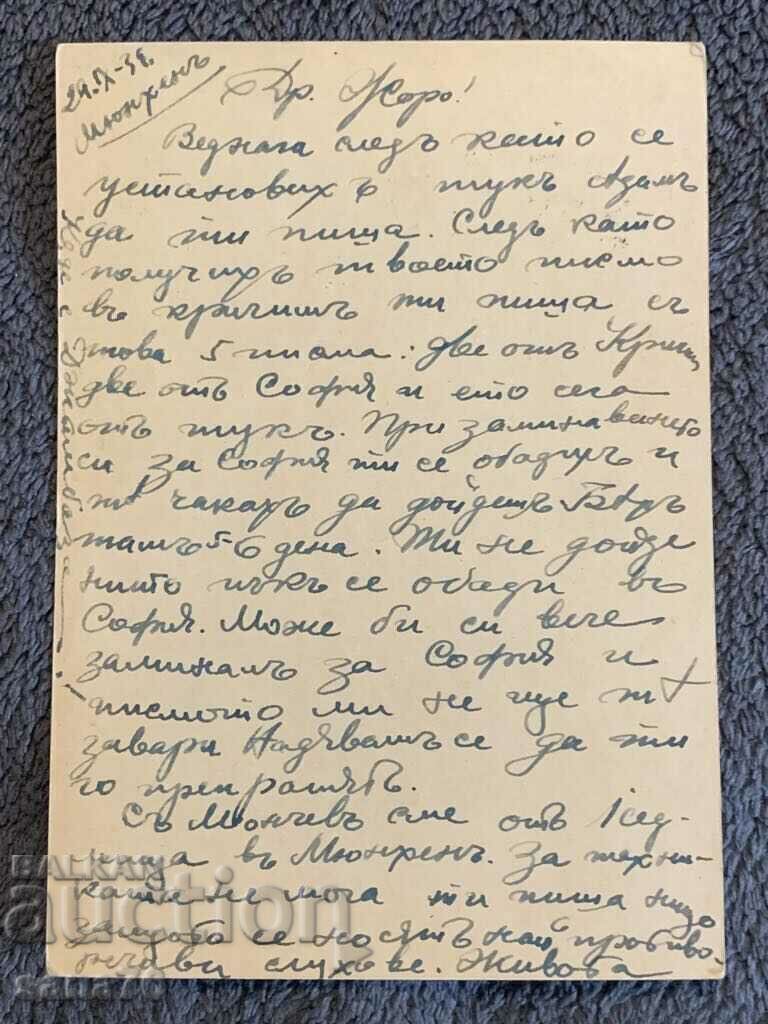 29.IX-38.
Мюнхенъ
Др. Жоро!
Веднага следъ като се
установихъ тукъ
да ти пиша. Следъ като
получихъ твоето писмо
въ Кричимъ ти пиша съ
това 5 писма: две отъ Крич.
две отъ София и ето сега
отъ тукъ. При заминаването
си за София ти се обадихъ и
тѫ чакахъ да дойдешъ. Бѣхъ
тамъ 5-6 дена. Ти не дойде
нито пъкъ се обади въ
София. Може би си вече
заминалъ за София и
писмото ми не ще тѫ
завари. Надѣвамъ се да ти
го препратятъ.
Съ Мончевъ сме отъ 1 сед-
мица въ Мюнхенъ. За техни-
ката не мога ти пиша нищо
защото се носятъ най противо-
речиви слухове. Живота
BALKAN
auction